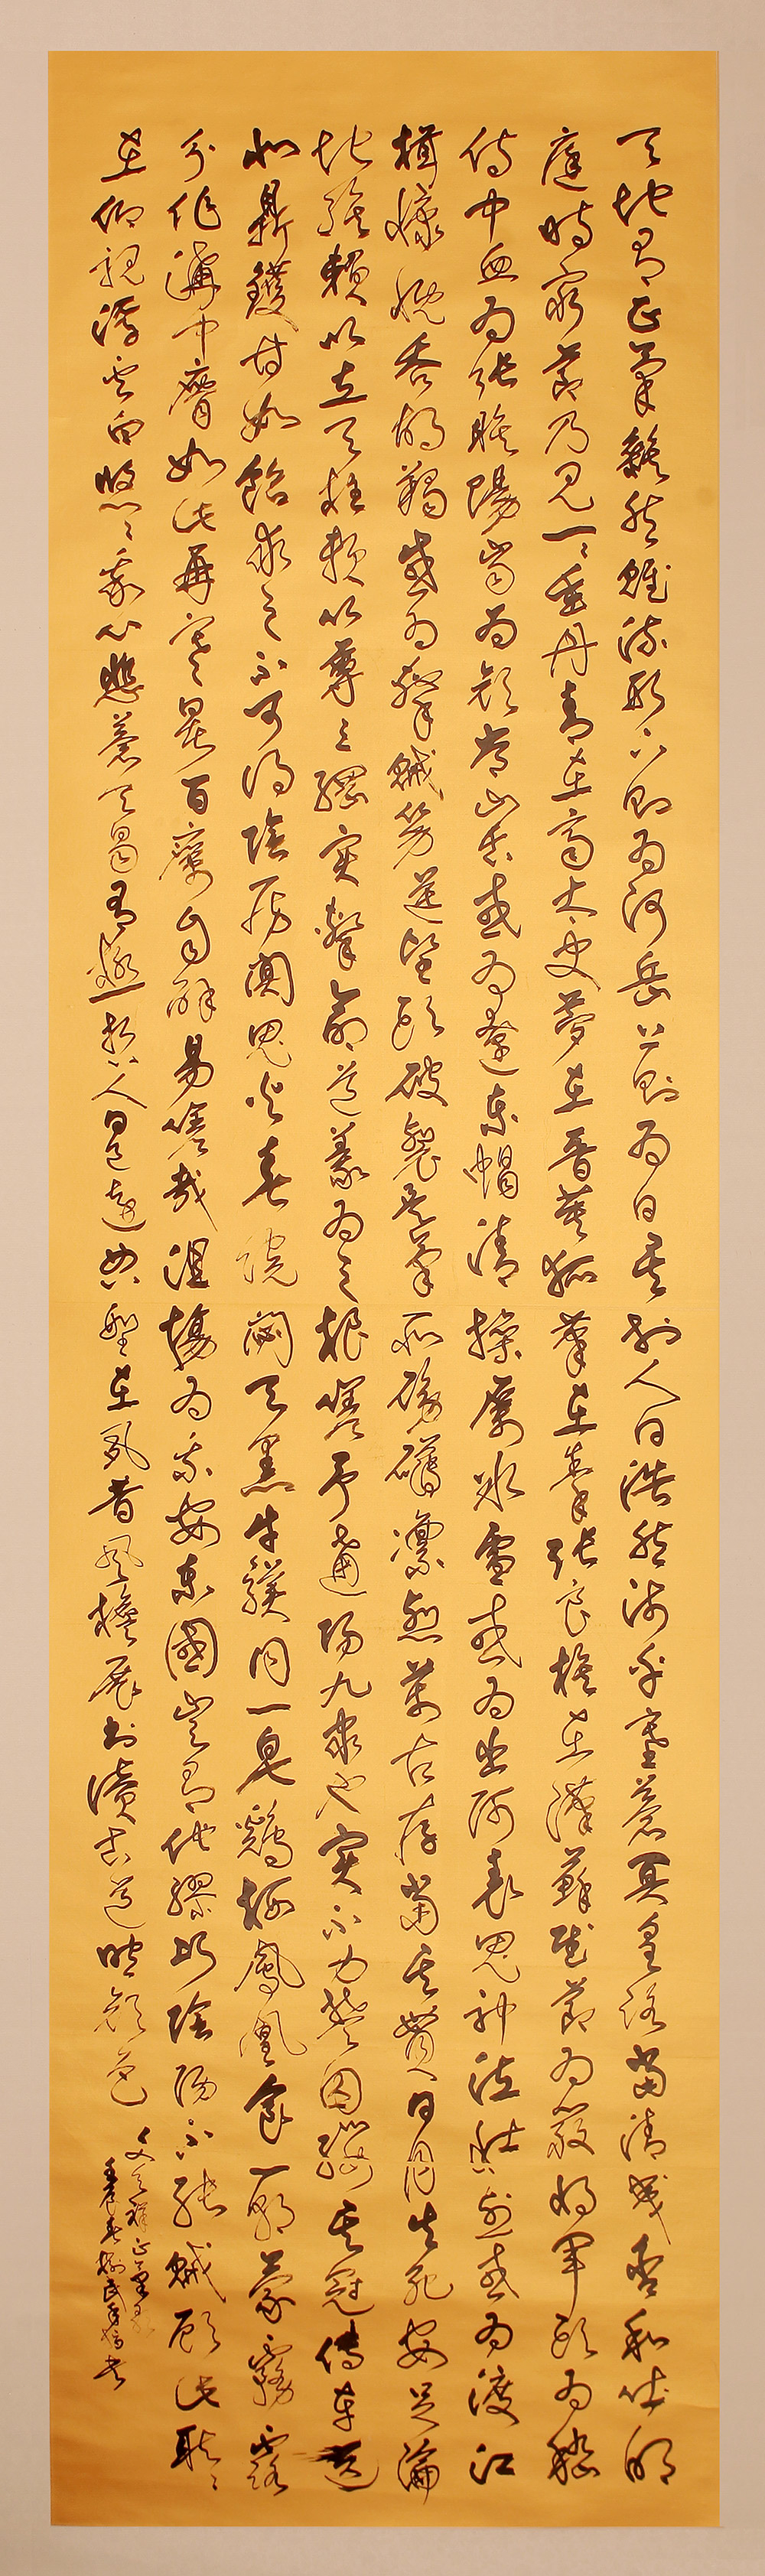 天地有正氣雜然賦流形下則為河岳上則為日星於人曰浩然沛乎塞蒼冥皇路當清夷含和吐明
庭時窮節乃見一一垂丹青在齊太史簡在晉董狐筆在秦張良椎在漢蘇武節為嚴將軍頭為嵇
侍中血為張睢陽齒為顏常山舌或為遼東帽清操厲冰雪或為出師表鬼神泣壯烈或為渡江
楫慷慨吞胡羯或為擊賊笏逆豎頭破裂是氣所磅礴凜烈萬古存當其貫日月生死安足論
地維賴以立天柱賴以尊三綱實繫命道義為之根嗟予遘陽九隸也實不力楚囚纓其冠傳車送
北鼎鑊甘如飴求之不可得陰房闃鬼火春院閟天黑牛驥同一皂雞棲鳳凰食一朝蒙霧露
分作溝中瘠如此再寒暑百癘自辟易嗟哉沮場為我安樂國豈有他繆巧陰陽不能賊顧此耿々
在仰視浮雲白悠々我心悲蒼天曷有極哲人日已遠典型在夙昔風檐展書讀古道照顏色
文天祥正氣歌
壬辰春書